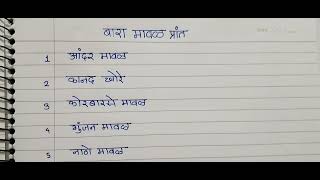 बारा मावळ प्रांत
1 आंदर मावळ
2 कानद खोरे
3 कोरबारसे मावळ
4 गुंजन मावळ
5 नाणे मावळ